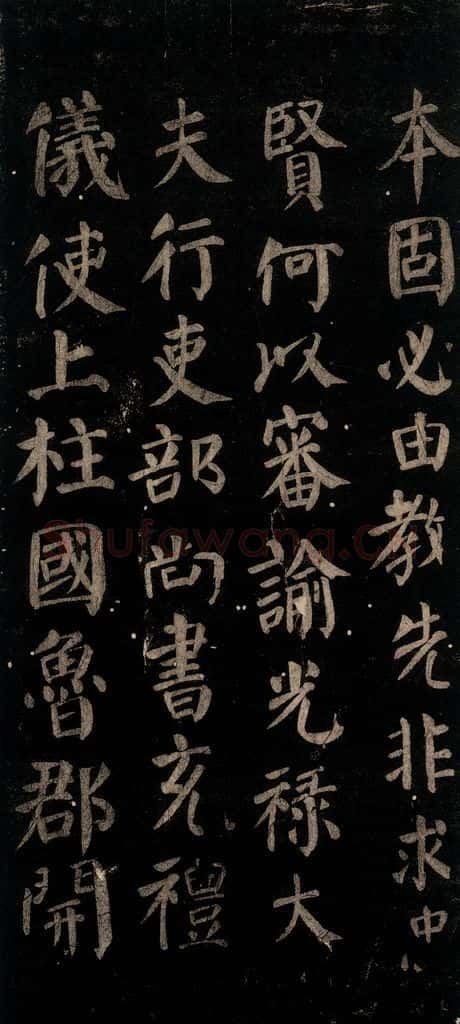 本固必由教先非求中
賢何以審諭光禄大
夫行吏部尚書充禮
儀使上柱國魯郡開
Shufawang.cn